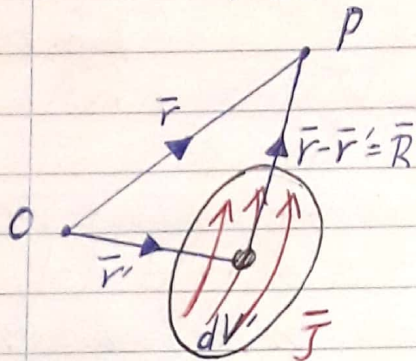 P
r̄
r̄-r̄'=R̄
O
r̄'
dV'
J̄